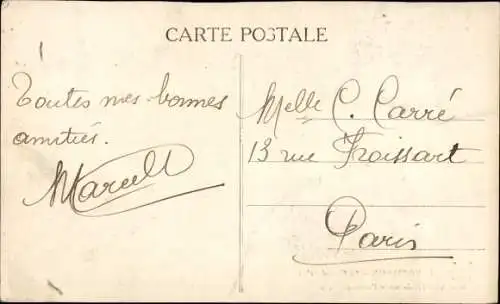 CARTE POSTALE
Toutes mes bonnes
amitiés.
Marcell
Melle C. Carré
13 rue Froissart
Paris